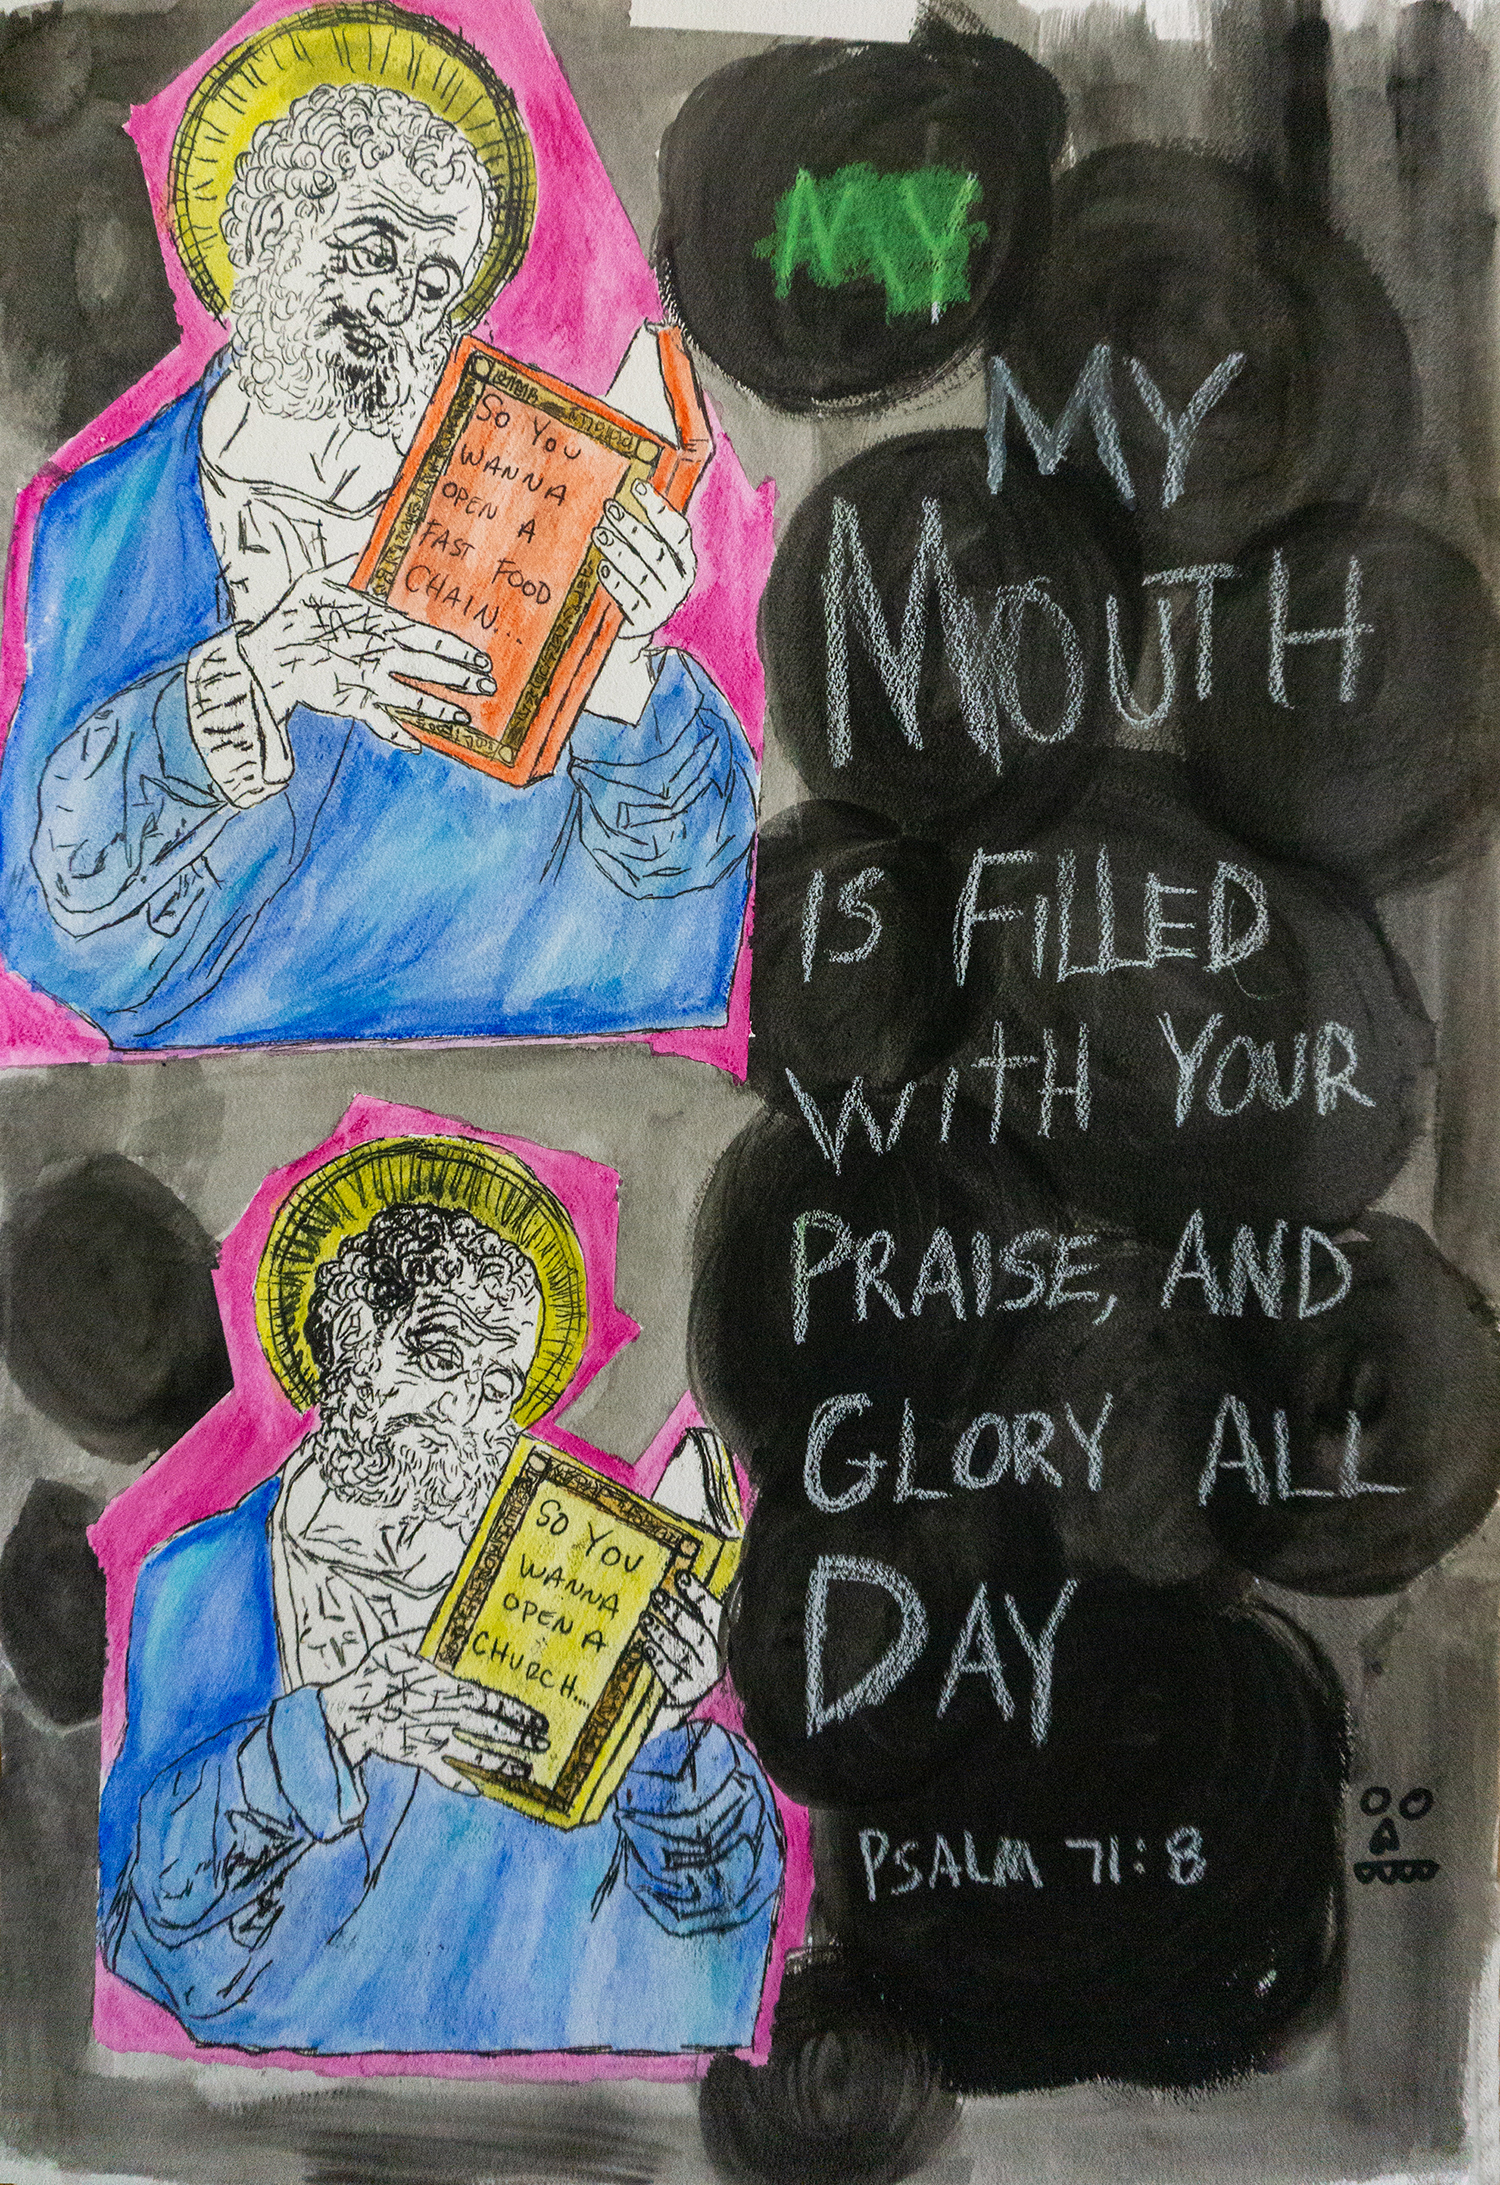 So You
WANNA
OPEN A
FAST FOOD
CHAIN...
So You
WANNA
OPEN A
CHURCH...
MY
MY
MOUTH
IS FILLED
WITH YOUR
PRAISE, AND
GLORY ALL
DAY
PSALM 71:8